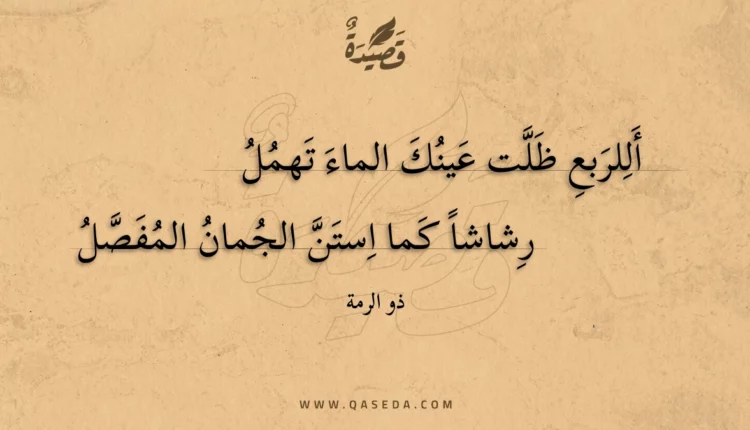 قَصِيدَةٌ
أَلِلرَبعِ ظَلَّت عَينُكَ الماءَ تَهمُلُ
رِشاشاً كَما اِستَنَّ الجُمانُ المُفَصَّلُ
ذو الرمة
WWW.QASEDA.COM